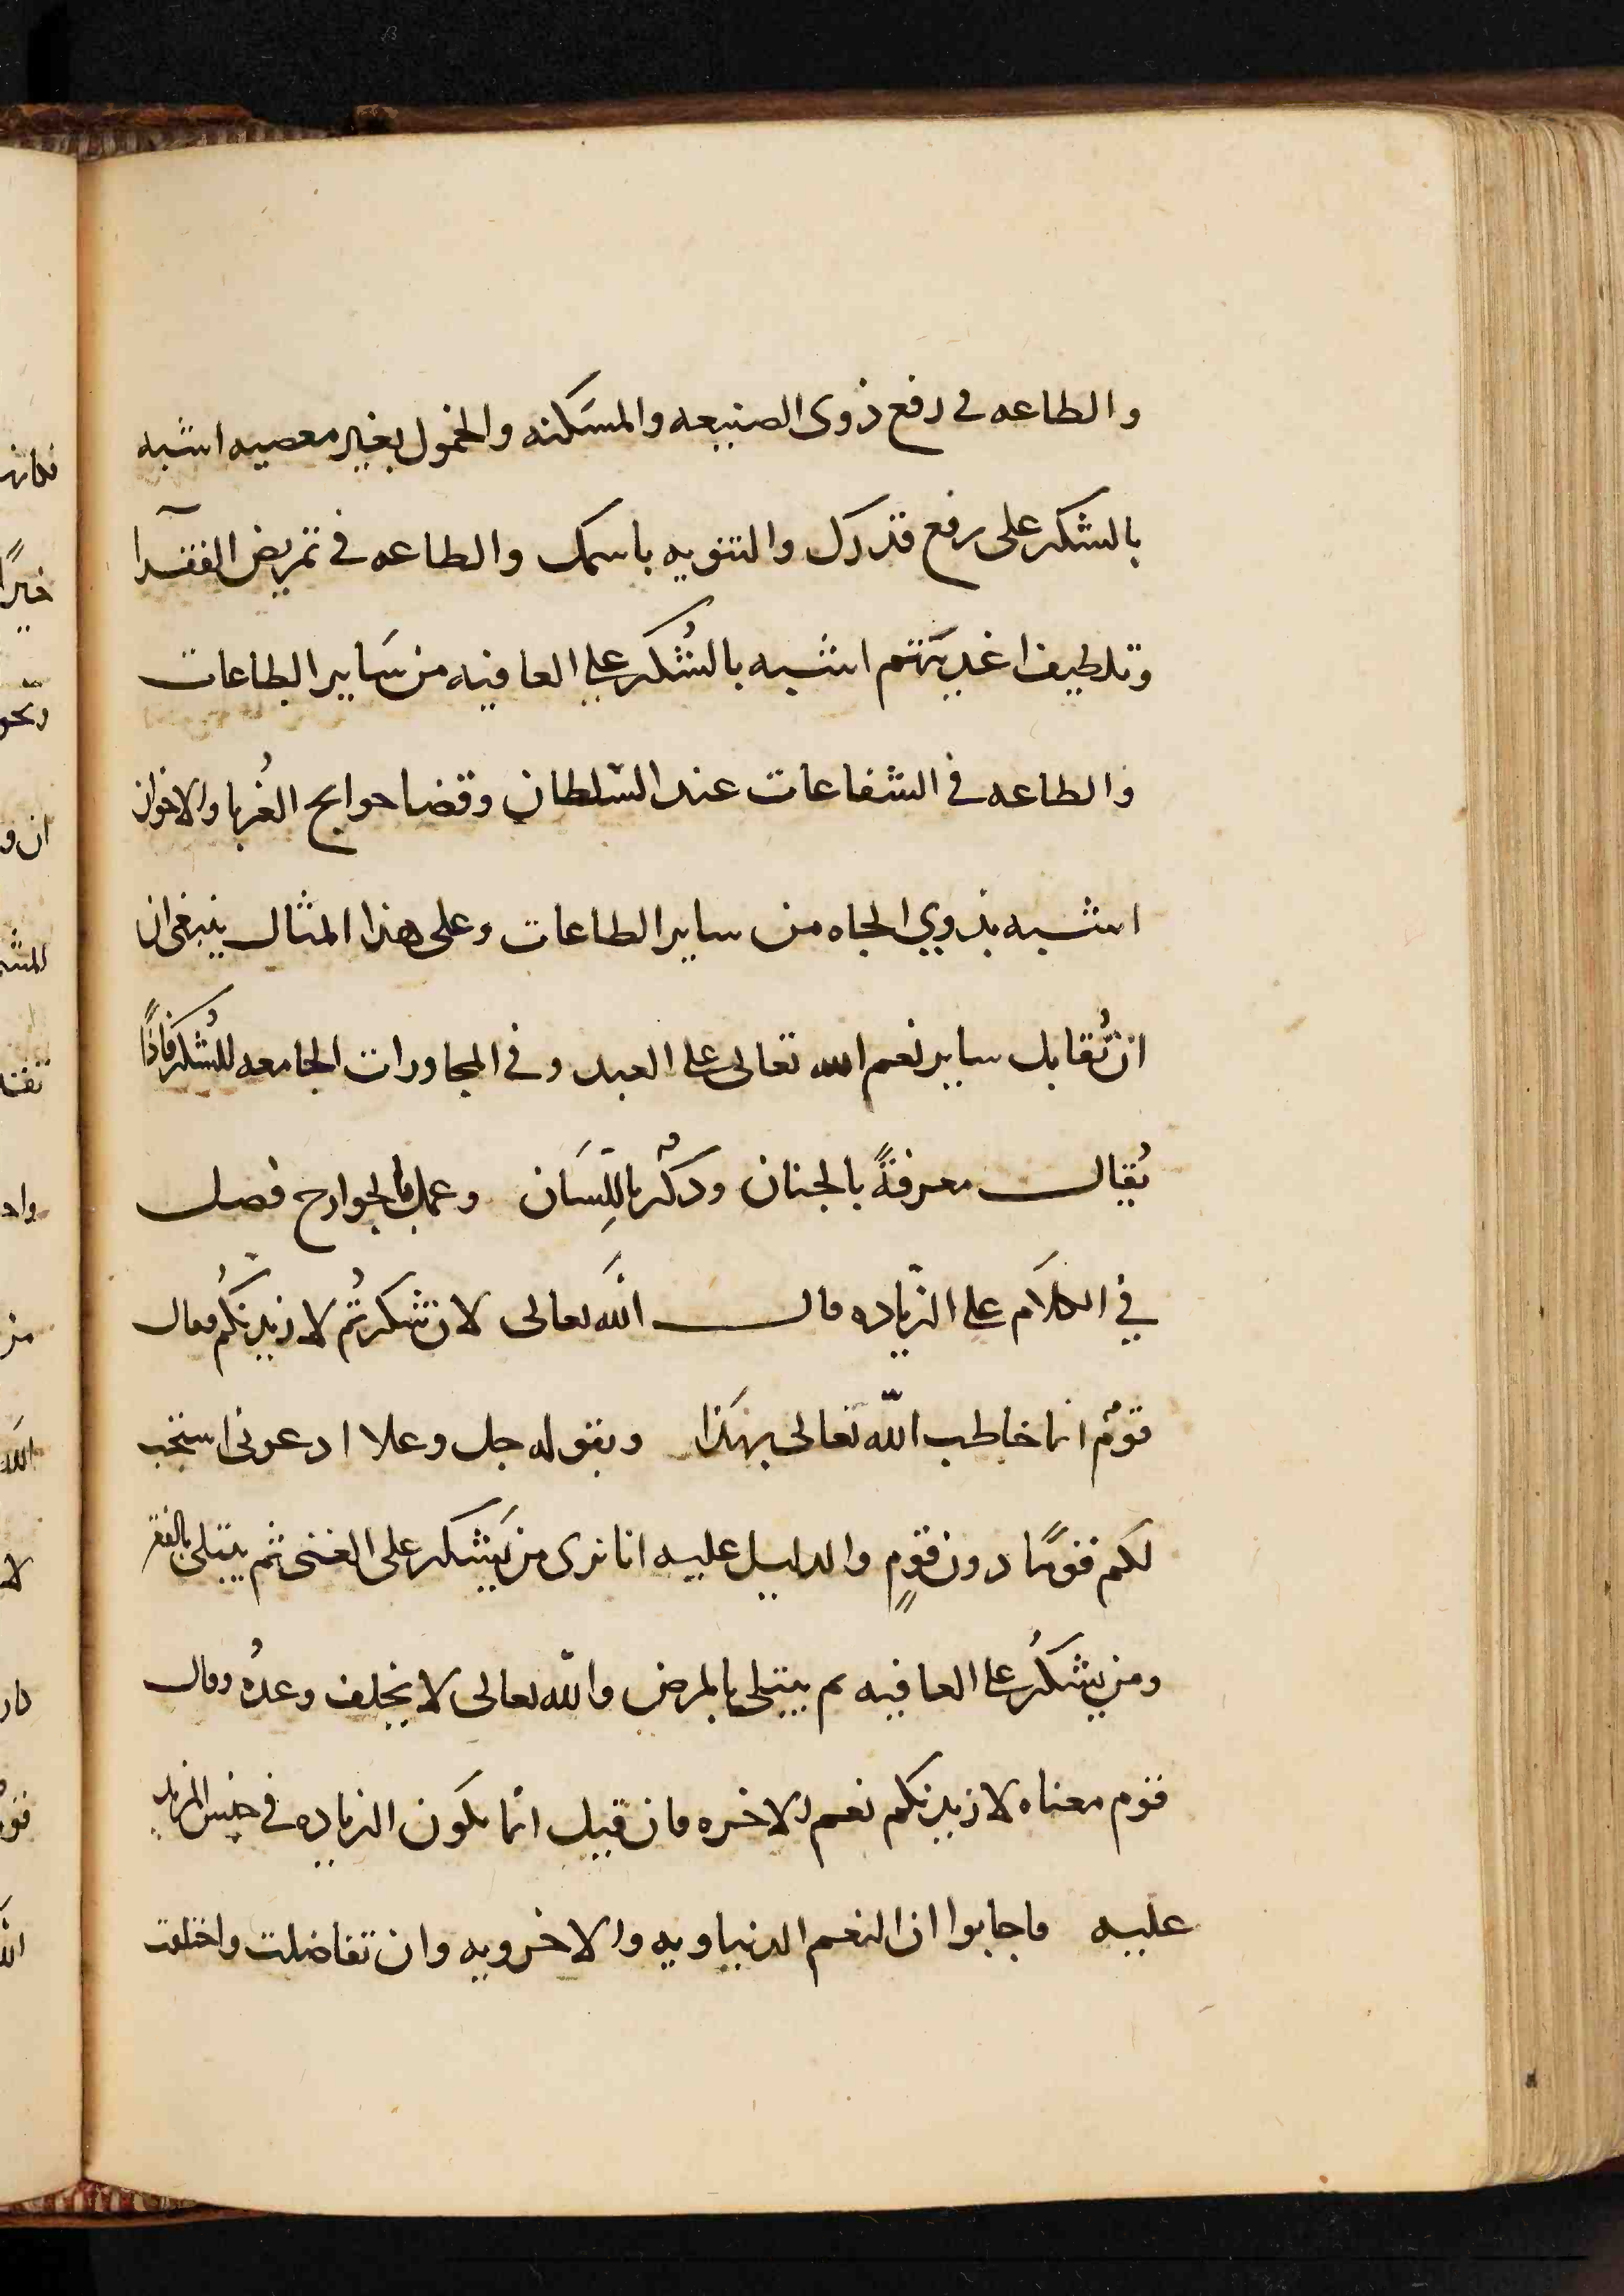 والطاعه في رفع ذوى الصنيعه والمسَكنه والخمول بغير معصيه اشبه
بالشكر على رفع قدرك والتنويه باسمك والطاعه في تمريض الفقرآ
وتلطيف اغديتهم اشبه بالشُكر على العافيه من سَاير الطاعات
والطاعه في الشفاعات عند السّلطان وقضا حوايج الغُربا والاخوان
اشبه بذوي الجاه من ساير الطاعات وعلى هذا المثال ينبغى ان
ان تُقابل ساير نعم الله تعالى على العبد وفي المجاورات الجامعه للشُكر فاذًا
يُقال معرفةً بالجنان وذكرٌ باللِّسَان وعمل بالجوارح فصل
في الكلَام على الزّياده قال اللَّه تعالى لان شكرتُم لازيدنكُم فقال
قومٌ انما خاطب اللّه تعالى بهَذا وبقوله جل وعلا ادعونى استجب
لكم قومًا دون قومٍ والدليل عليه انا نرى من يَشكر على الغنى ثم يبتلى بالفقر
ومن يشكُر على العافيه ثم يبتلى بالمرض واللّه تعالى لا يخلف وعدُه وقال
قوم معناه لازيدنكم نعم الاخره فان قيل انما يكون الزياده في جنس المزيد
عليه فاجابوا ان النعم الدنياويه والاخرويه وان تفاضلت واختلفت